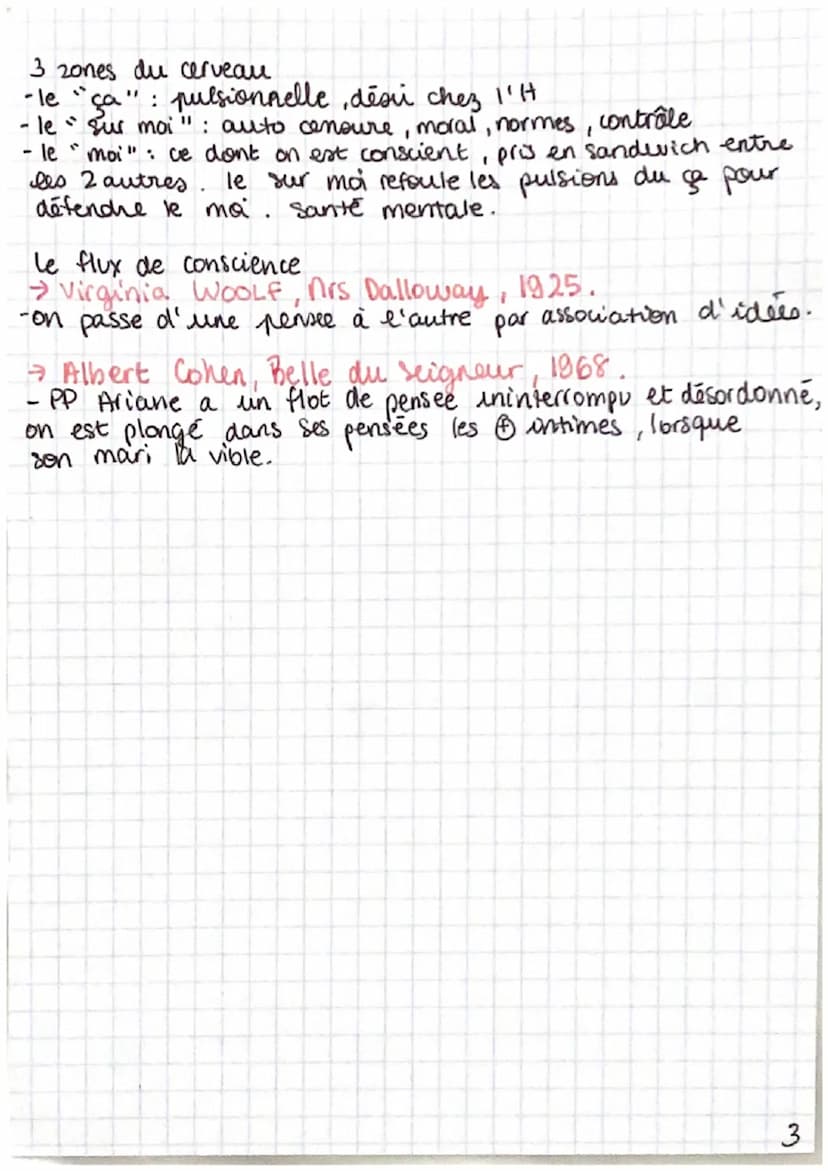 3 zones du cerveau
- le "ça" : pulsionnelle, désir chez l'H
- le "sur moi" : auto censure, moral, normes, contrôle
- le "moi" : ce dont on est conscient, pris en sandwich entre
les 2 autres. le sur moi refoule les pulsions du ça pour
défendre le moi. santé mentale.
Le flux de conscience
→ Virginia WOOLF, Mrs Dalloway, 1925.
- on passe d'une pensée à l'autre par association d'idées.
→ Albert Cohen, Belle du seigneur, 1968.
- PP Ariane a un flot de pensée ininterrompu et désordonné,
on est plongé dans ses pensées les ⊕ intimes, lorsque
son mari la vible.
3